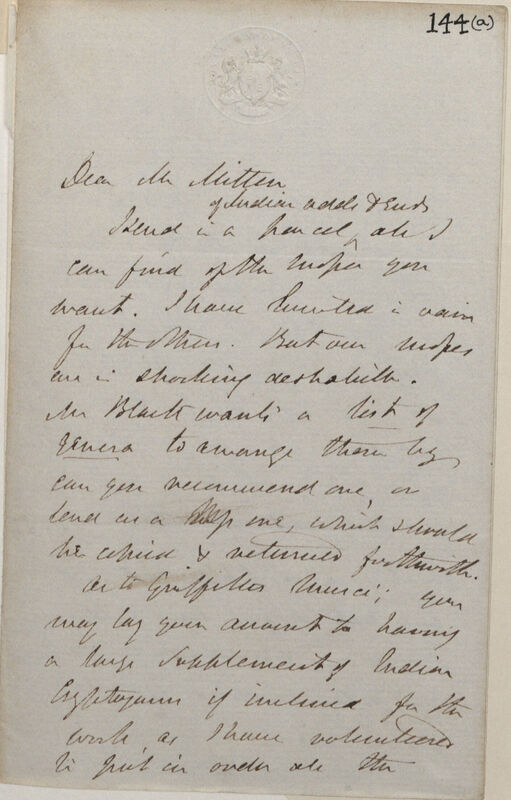 144(a)
Dear Mr Mitten
of Indian odds & ends
I send in a parcel all I
can find of the Mosses you
want. I have hunted in vain
for the others. But our mosses
are in shocking deshabille.
Mr Black wants a list of
genera to arrange them by
can you recommend one, or
lend us a Mss one, which should
be copied & returned forthwith.
As to Griffiths Musci; you
may lay your account to having
a large supplement of Indian
Cryptogams if inclined for the
work as I have volunteered
to put in order all the